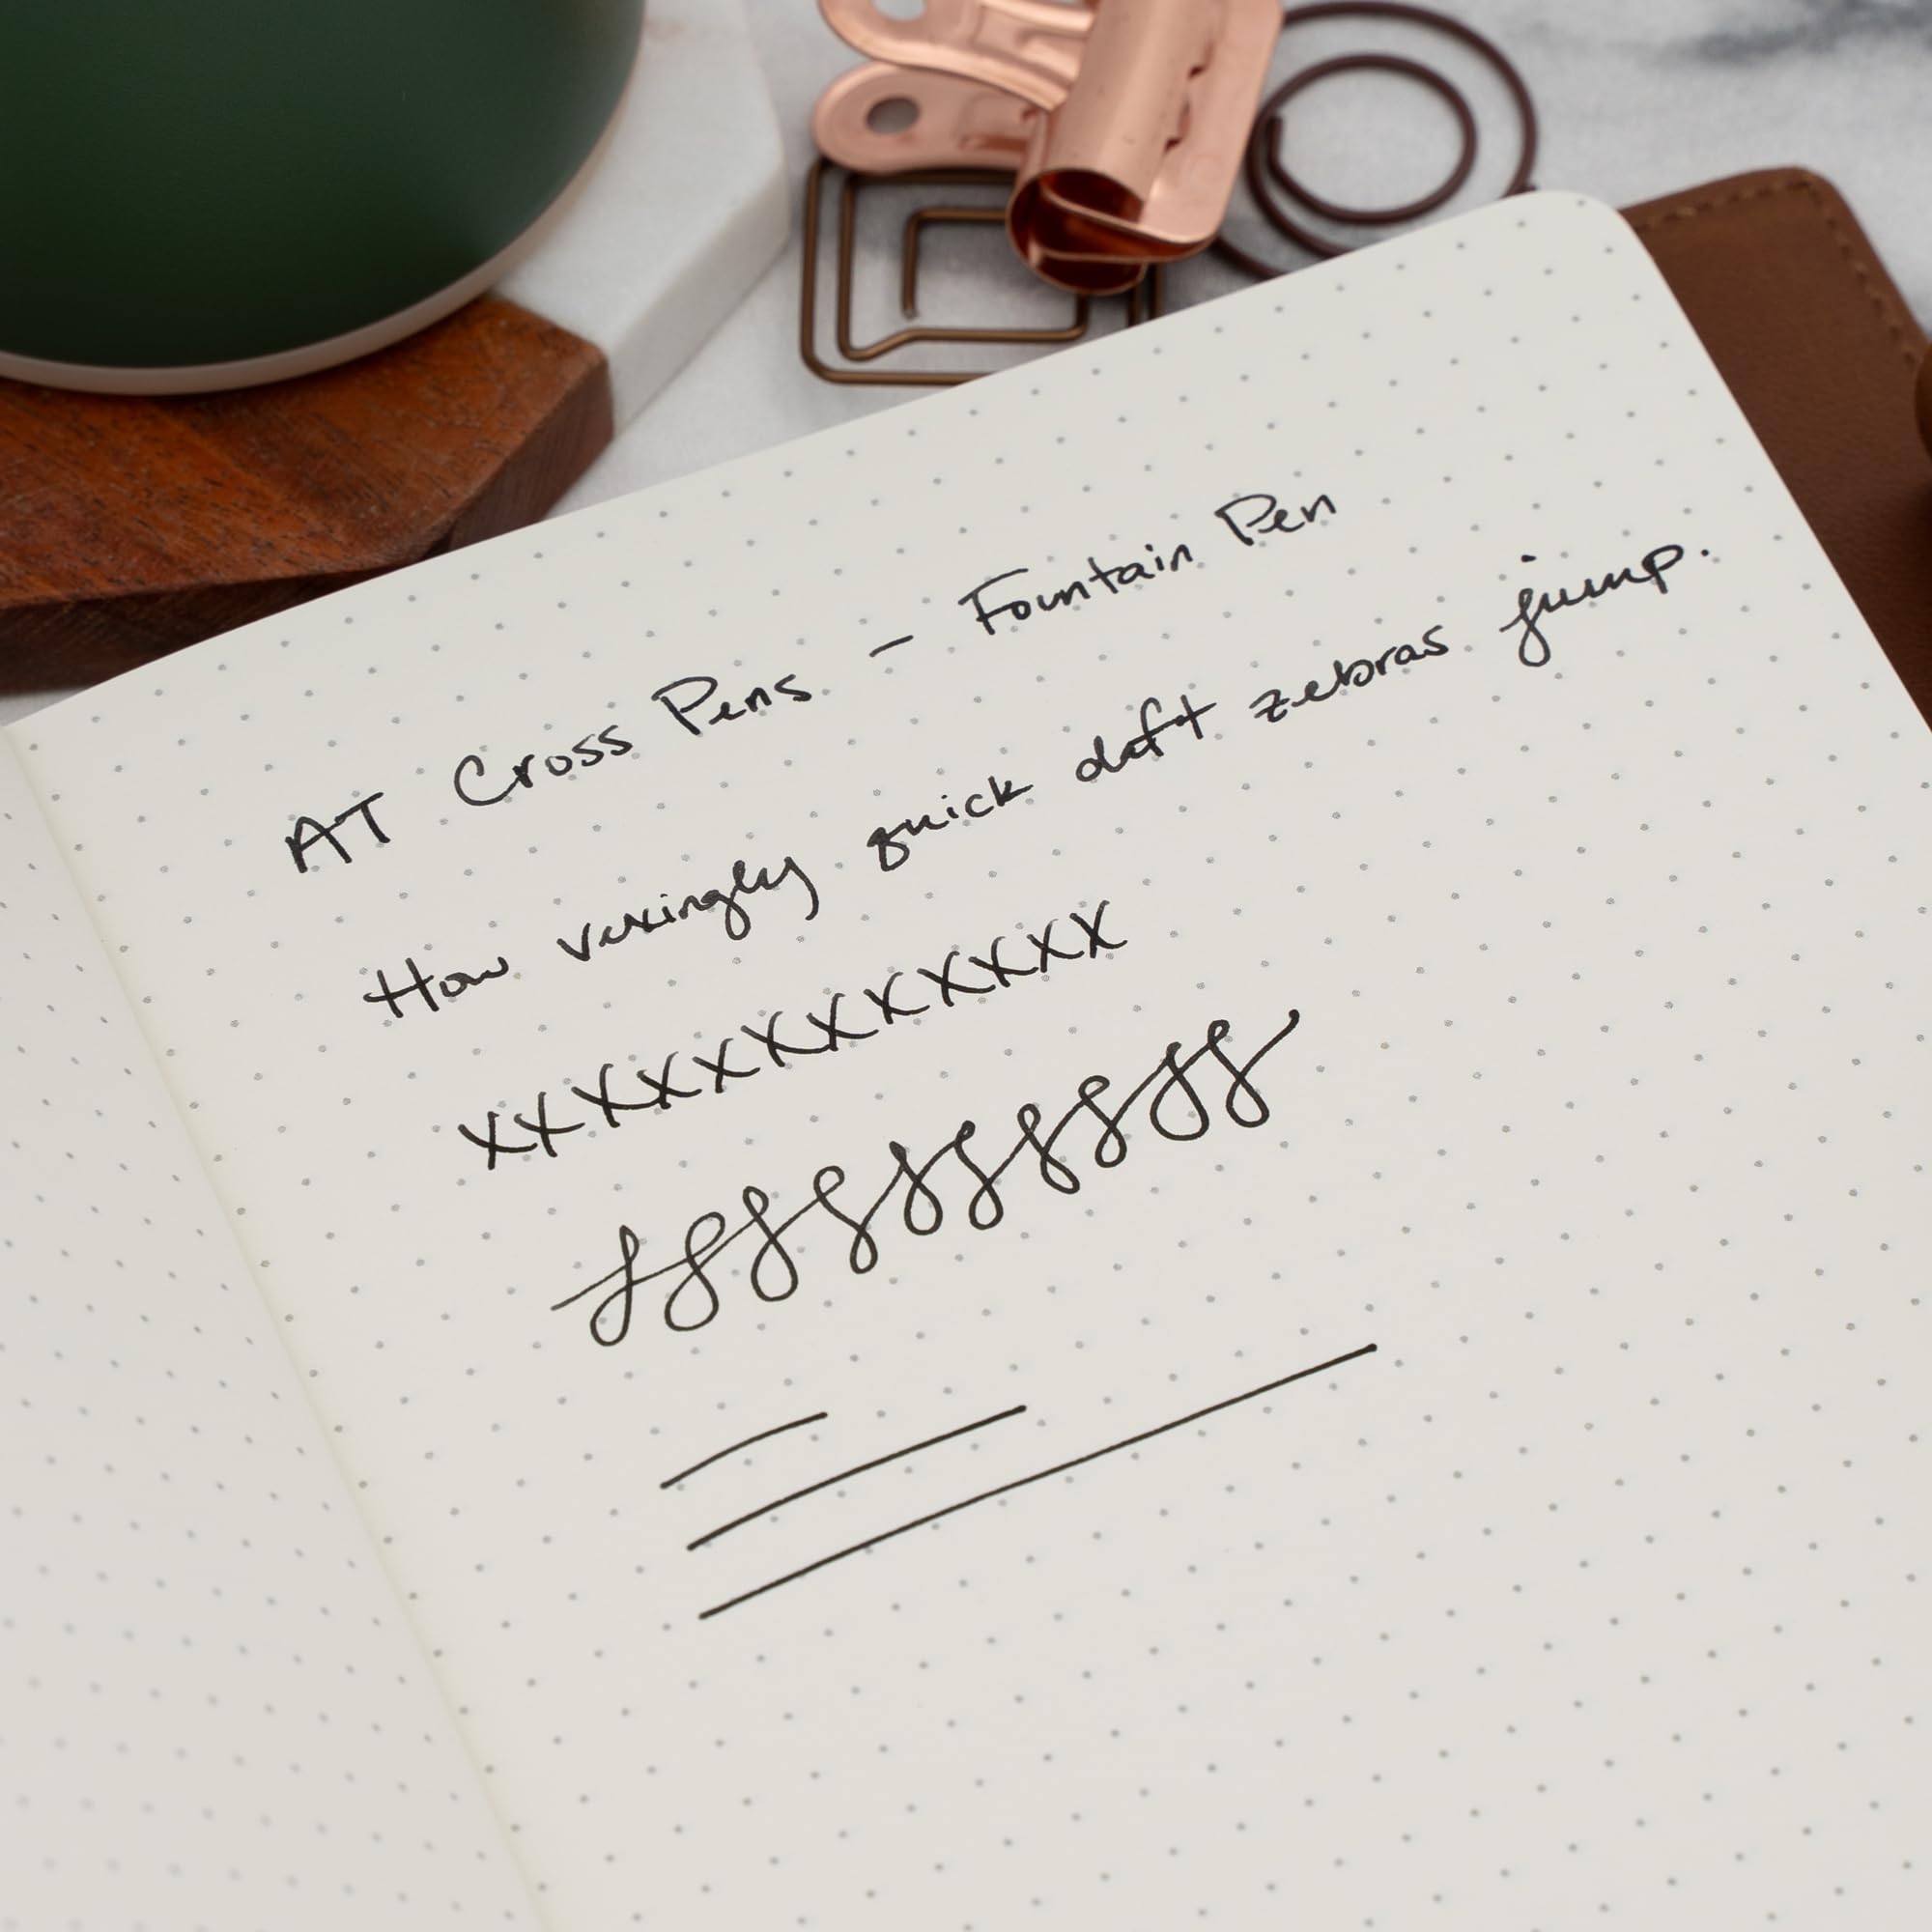 AT Cross Pens - Fountain Pen
How vexingly quick daft zebras jump.
xxxxxxxxxxxx